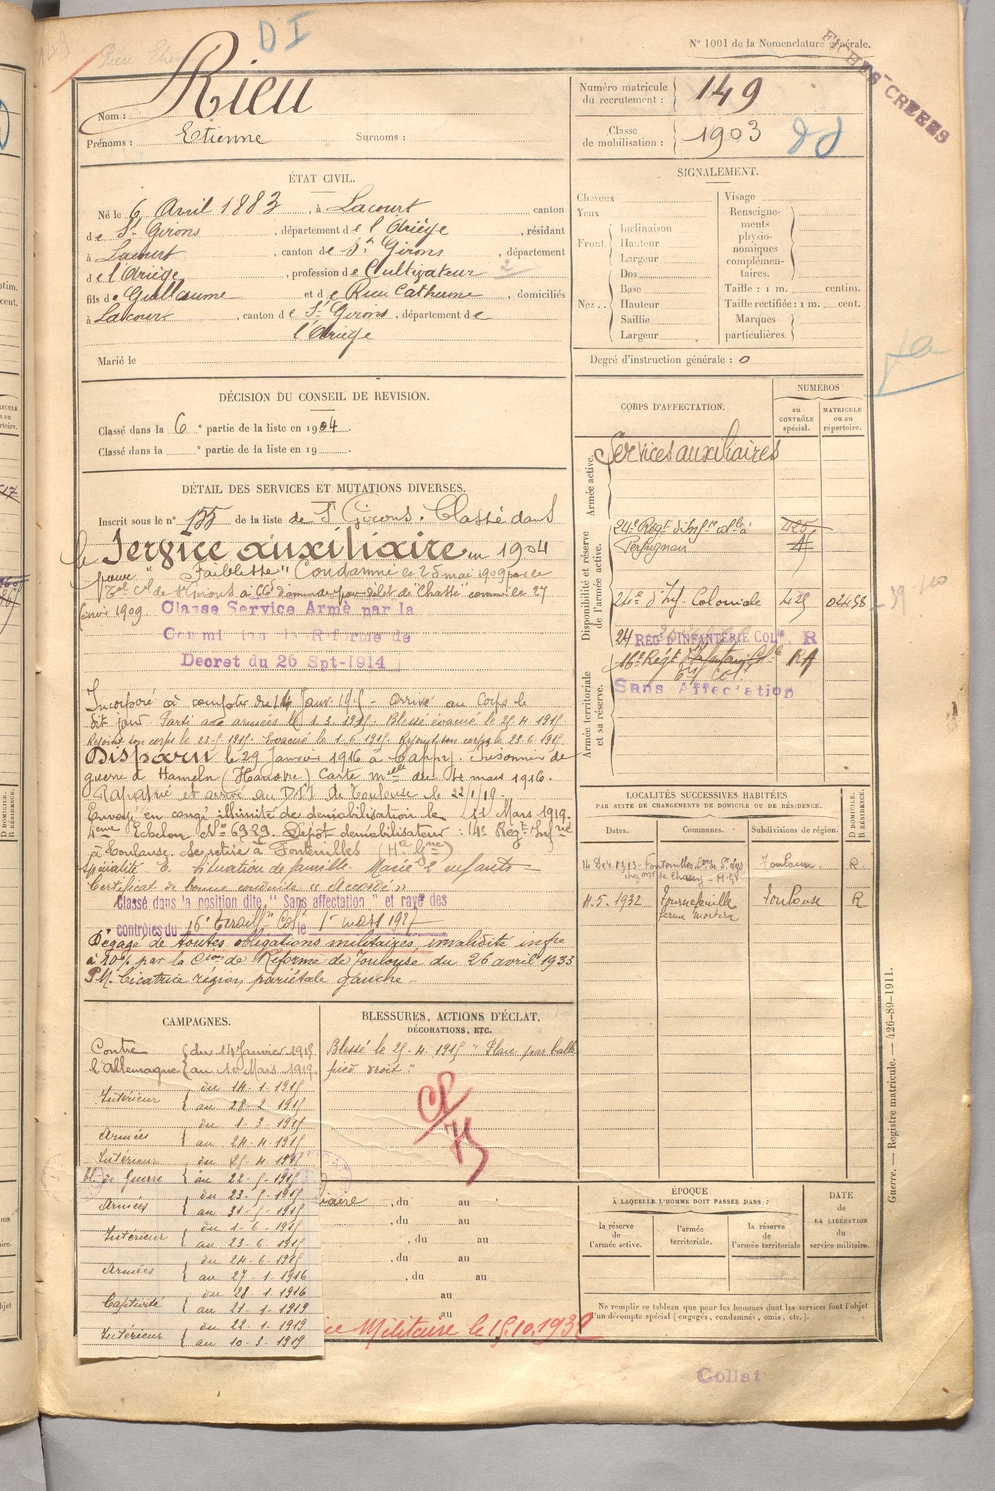 D I
N° 1001 de la Nomenclature générale.
FICHES CRÉÉES
Nom : Rieu
Prénoms : Etienne Surnoms :
Numéro matricule du recrutement : 149
Classe de mobilisation : 1903
ÉTAT CIVIL.
Né le 6 Avril 1883, à Lacourt canton
de St Girons, département de l'Ariège, résidant
à Lacourt, canton de St Girons, département
de l'Ariège, profession de Cultivateur 2
fils de Guillaume et de Rieu Catherine, domiciliés
à Lacourt, canton de St Girons, département de
l'Ariège
Marié le
SIGNALEMENT.
Cheveux
Yeux
Front Inclinaison
Hauteur
Largeur
Nez Dos
Base
Hauteur
Saillie
Largeur
Visage
Renseignements physionomiques complémentaires.
Taille : 1 m. centim.
Taille rectifiée : 1 m. cent.
Marques particulières.
Degré d'instruction générale : 0
DÉCISION DU CONSEIL DE REVISION.
Classé dans la 6 e partie de la liste en 1904.
Classé dans la e partie de la liste en 19
CORPS D'AFFECTATION.
NUMÉROS
AU CONTRÔLE spécial.
MATRICULE ou au répertoire.
Armée active.
Services auxiliaires
Disponibilité et réserve de l'armée active.
24e Régt d'Infrie Colle à
Perpignan
24e d'Inf. Coloniale 429 02498
24 REG D'INFANTERIE COLe R
Armée territoriale et sa réserve.
16e Régt
Sans Affectation
DÉTAIL DES SERVICES ET MUTATIONS DIVERSES.
Inscrit sous le n° 155 de la liste de St Girons. Classé dans
le Service auxiliaire en 1904
pour "Faiblesse" Condamné le 25 mai 1909 par le
Classé Service Armé par la
Commission de Réforme de
Decret du 26 Spt-1914
Incorporé à compter du 14 Janv. 1915 - Arrivé au Corps le
dit jour. Parti aux armées le 1.3.1915. Blessé évacué le 25.4.1915
Rejoint son corps le 23.5.1915. Evacué le 1.6.1915. Rejoint son corps le 22.6.1915
Disparu le 29 Janvier 1916 à Cappy. Prisonnier de
guerre à Hameln (Hanovre) Carte melle du 4 mars 1916.
Rapatrié et arrivé au D.I.I. de Toulouse le 22/1/19.
Envoyé en congé illimité de démobilisation le 11 Mars 1919.
4ème Echelon N° 6929. Dépôt démobilisateur : 14e Régt Infrie
à Toulouse. Se retire à Fontenilles (Hte Gne)
Spécialité E. Situation de famille Marié 2 enfants
Certificat de bonne conduite "Accordé"
Classé dans la position dite, "Sans affectation" et rayé des
contrôles du 16e le 1er mars 1927
Dégagé de toutes obligations militaires, invalidité infre
à 10% par la Cion de Réforme de Toulouse du 26 avril 1933
P.M. Cicatrice région pariétale gauche.
LOCALITÉS SUCCESSIVES HABITÉES
PAR SUITE DE CHANGEMENTS DE DOMICILE OU DE RÉSIDENCE.
Dates. Communes. Subdivisions de région. D DOMICILE. R RÉSIDENCE.
14 Déc 1913 Fontenilles Toulouse R
11.5.1932 Tournefeuille Toulouse R
CAMPAGNES.
Contre l'Allemagne du 14 Janvier 1915
au 10 Mars 1919.
Intérieur du 14.1.1915
au 28.2.1915
Armées du 1.3.1915
au 24.4.1915
Intérieur du 25.4.1915
bl. de Guerre au 22.5.1915
Armées du 23.5.1915
au 31.5.1915
Intérieur du 1.6.1915
au 23.6.1915
Armées du 24.6.1915
au 27.1.1916
Captivité du 28.1.1916
au 21.1.1919
Intérieur du 22.1.1919
au 10.3.1919
BLESSURES, ACTIONS D'ÉCLAT,
DÉCORATIONS, ETC.
Blessé le 25.4.1915 "Plaie par balle
pied droit"
iaire , du au
, du au
, du au
, du au
, du au
au
au
ce Militaire le 15.10.1932
ÉPOQUE
À LAQUELLE L'HOMME DOIT PASSER DANS :
la réserve de l'armée active.
l'armée territoriale.
la réserve de l'armée territoriale
DATE de LA LIBÉRATION du service militaire.
Ne remplir ce tableau que pour les hommes dont les services font l'objet
d'un décompte spécial (engagés, condamnés, omis, etc.).
Guerre. — Registre matricule. — 426-89-1911.
Collat